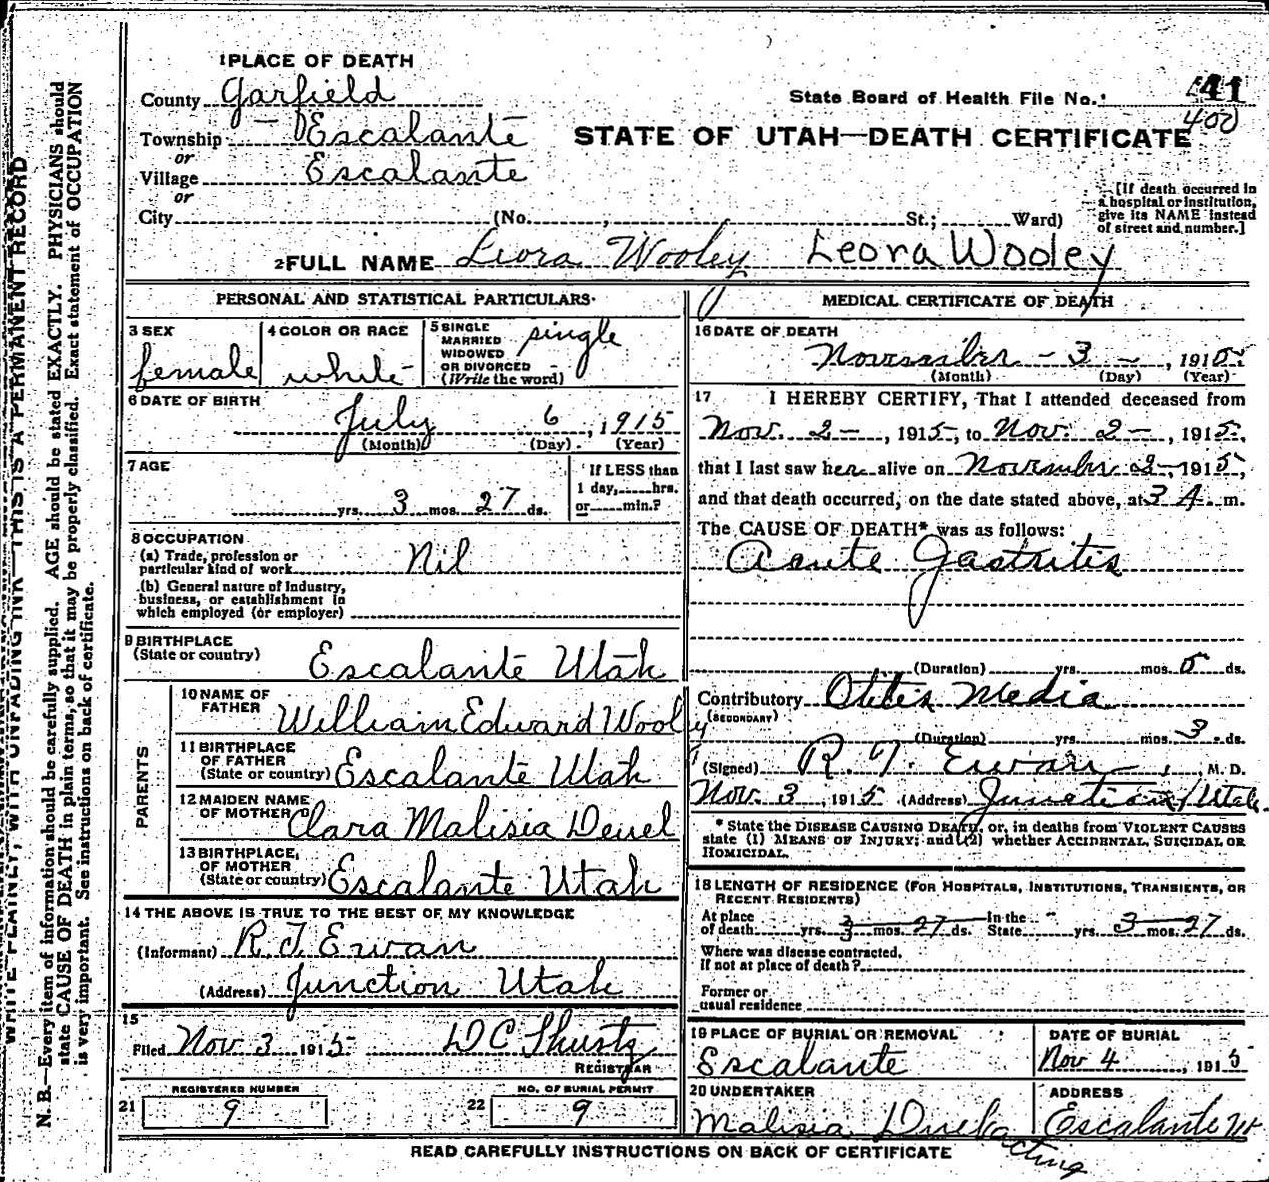 WRITE PLAINLY, WITH UNFADING INK—THIS IS A PERMANENT RECORD
N. B.—Every item of information should be carefully supplied. AGE should be stated EXACTLY. PHYSICIANS should
state CAUSE OF DEATH in plain terms, so that it may be properly classified. Exact statement of OCCUPATION
is very important. See instructions on back of certificate.
1 PLACE OF DEATH
County Garfield
State Board of Health File No. 41
400
Township Escalante
STATE OF UTAH—DEATH CERTIFICATE
or
Village Escalante
or
City (No. , St.; Ward)
[If death occurred in
a hospital or institution,
give its NAME instead
of street and number.]
2 FULL NAME Leora Wooley Leora Wooley
PERSONAL AND STATISTICAL PARTICULARS
3 SEX
female
4 COLOR OR RACE
white
5 SINGLE
MARRIED
WIDOWED
OR DIVORCED
(Write the word)
single
6 DATE OF BIRTH
July 6, 1915
(Month) (Day) (Year)
7 AGE
yrs. 3 mos. 27 ds.
If LESS than
1 day, hrs.
or min.?
8 OCCUPATION
(a) Trade, profession or
particular kind of work Nil
(b) General nature of Industry,
business, or establishment in
which employed (or employer)
9 BIRTHPLACE
(State or country) Escalante Utah
PARENTS
10 NAME OF
FATHER William Edward Wooley
11 BIRTHPLACE
OF FATHER
(State or country) Escalante Utah
12 MAIDEN NAME
OF MOTHER Clara Malisia Deuel
13 BIRTHPLACE
OF MOTHER
(State or country) Escalante Utah
14 THE ABOVE IS TRUE TO THE BEST OF MY KNOWLEDGE
(Informant) R. J. Erwan
(Address) Junction Utah
15
Filed Nov 3 1915 D C Shurtz
REGISTRAR
REGISTERED NUMBER
21 9
NO. OF BURIAL PERMIT
22 9
MEDICAL CERTIFICATE OF DEATH
16 DATE OF DEATH
November - 3 -, 1915
(Month) (Day) (Year)
17 I HEREBY CERTIFY, That I attended deceased from
Nov. 2 -, 1915, to Nov. 2 -, 1915,
that I last saw her alive on November 2, 1915,
and that death occurred, on the date stated above, at 3 A m.
The CAUSE OF DEATH* was as follows:
Acute Gastritis
(Duration) yrs. mos. 5 ds.
Contributory Otitis Media
(SECONDARY)
(Duration) yrs. mos. 3 ds.
(Signed) R. J. Erwan, M. D.
Nov. 3, 1915 (Address) Junction, Utah
* State the DISEASE CAUSING DEATH, or, in deaths from VIOLENT CAUSES
state (1) MEANS OF INJURY; and (2) whether ACCIDENTAL, SUICIDAL OR
HOMICIDAL.
18 LENGTH OF RESIDENCE (FOR HOSPITALS, INSTITUTIONS, TRANSIENTS, OR
RECENT RESIDENTS)
At place In the
of death yrs. 3 mos. 27 ds. State yrs. 3 mos. 27 ds.
Where was disease contracted,
if not at place of death?
Former or
usual residence
19 PLACE OF BURIAL OR REMOVAL
Escalante
DATE OF BURIAL
Nov 4, 1915
20 UNDERTAKER
Malisia acting
ADDRESS
Escalante Ut
READ CAREFULLY INSTRUCTIONS ON BACK OF CERTIFICATE